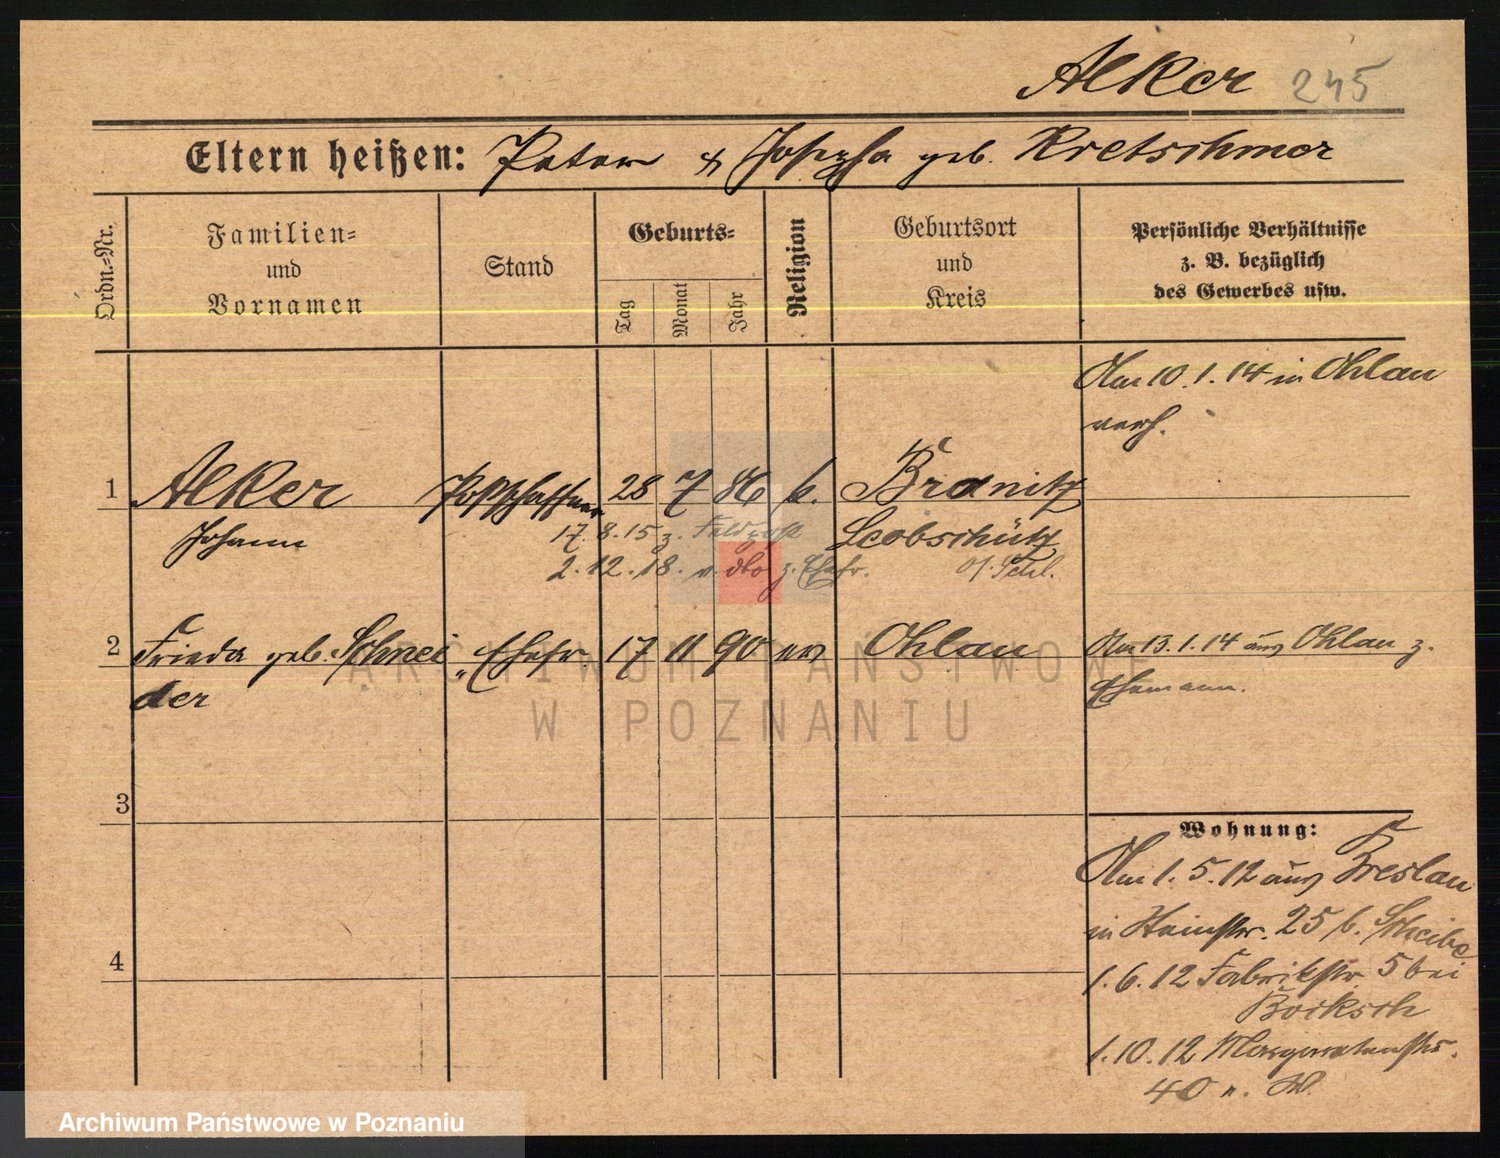 Alker 245
Eltern heißen: Peter & Josepha geb. Kretschmer
Ordn.-Nr.
Familien-
und
Vornamen
Stand
Geburts-
Tag
Monat
Jahr
Religion
Geburtsort
und
Kreis
Persönliche Verhältnisse
z. B. bezüglich
des Gewerbes usw.
Am 10.1.14 in Ohlau
verh.
1 Alker Postschaffner 28 7 86 k. Branitz
Johann 17.8.15 z. Feldpost Leobschütz
2.12.18. v. dto z. Ehefr. O/Schl.
2 Frieda geb. Schnei Ehefr 17 11 90 ev Ohlau Am 13.1.14 aus Ohlau z.
der Ehemann.
3
Wohnung:
Am 1.5.12 aus Breslau
in Hainstr. 25 b. Scheibe
4
1.6.12 Fabrikstr 5 bei
Bocksch
1.10.12 Margaretenstr.
40 n. W.
ARCHIWUM PAŃSTWOWE
W POZNANIU
Archiwum Państwowe w Poznaniu